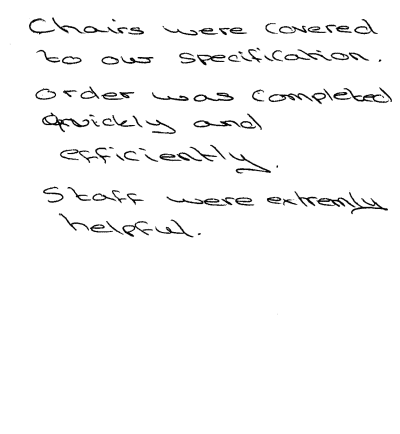 Chairs were covered
to our specification.
Order was completed
quickly and
efficiently.
Staff were extremly
helpful.